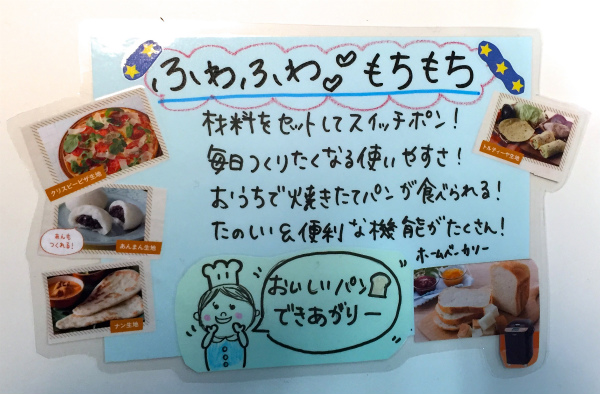 ふわふわ もちもち
材料をセットしてスイッチポン!
毎日つくりたくなる使いやすさ!
おうちで焼きたてパンが食べられる!
たのしい&便利な機能がたくさん!
ホームベーカリー
おいしいパン
できあがりー
クリスピーピザ生地
あんも
つくれる!
あんまん生地
ナン生地
トルティーヤ生地